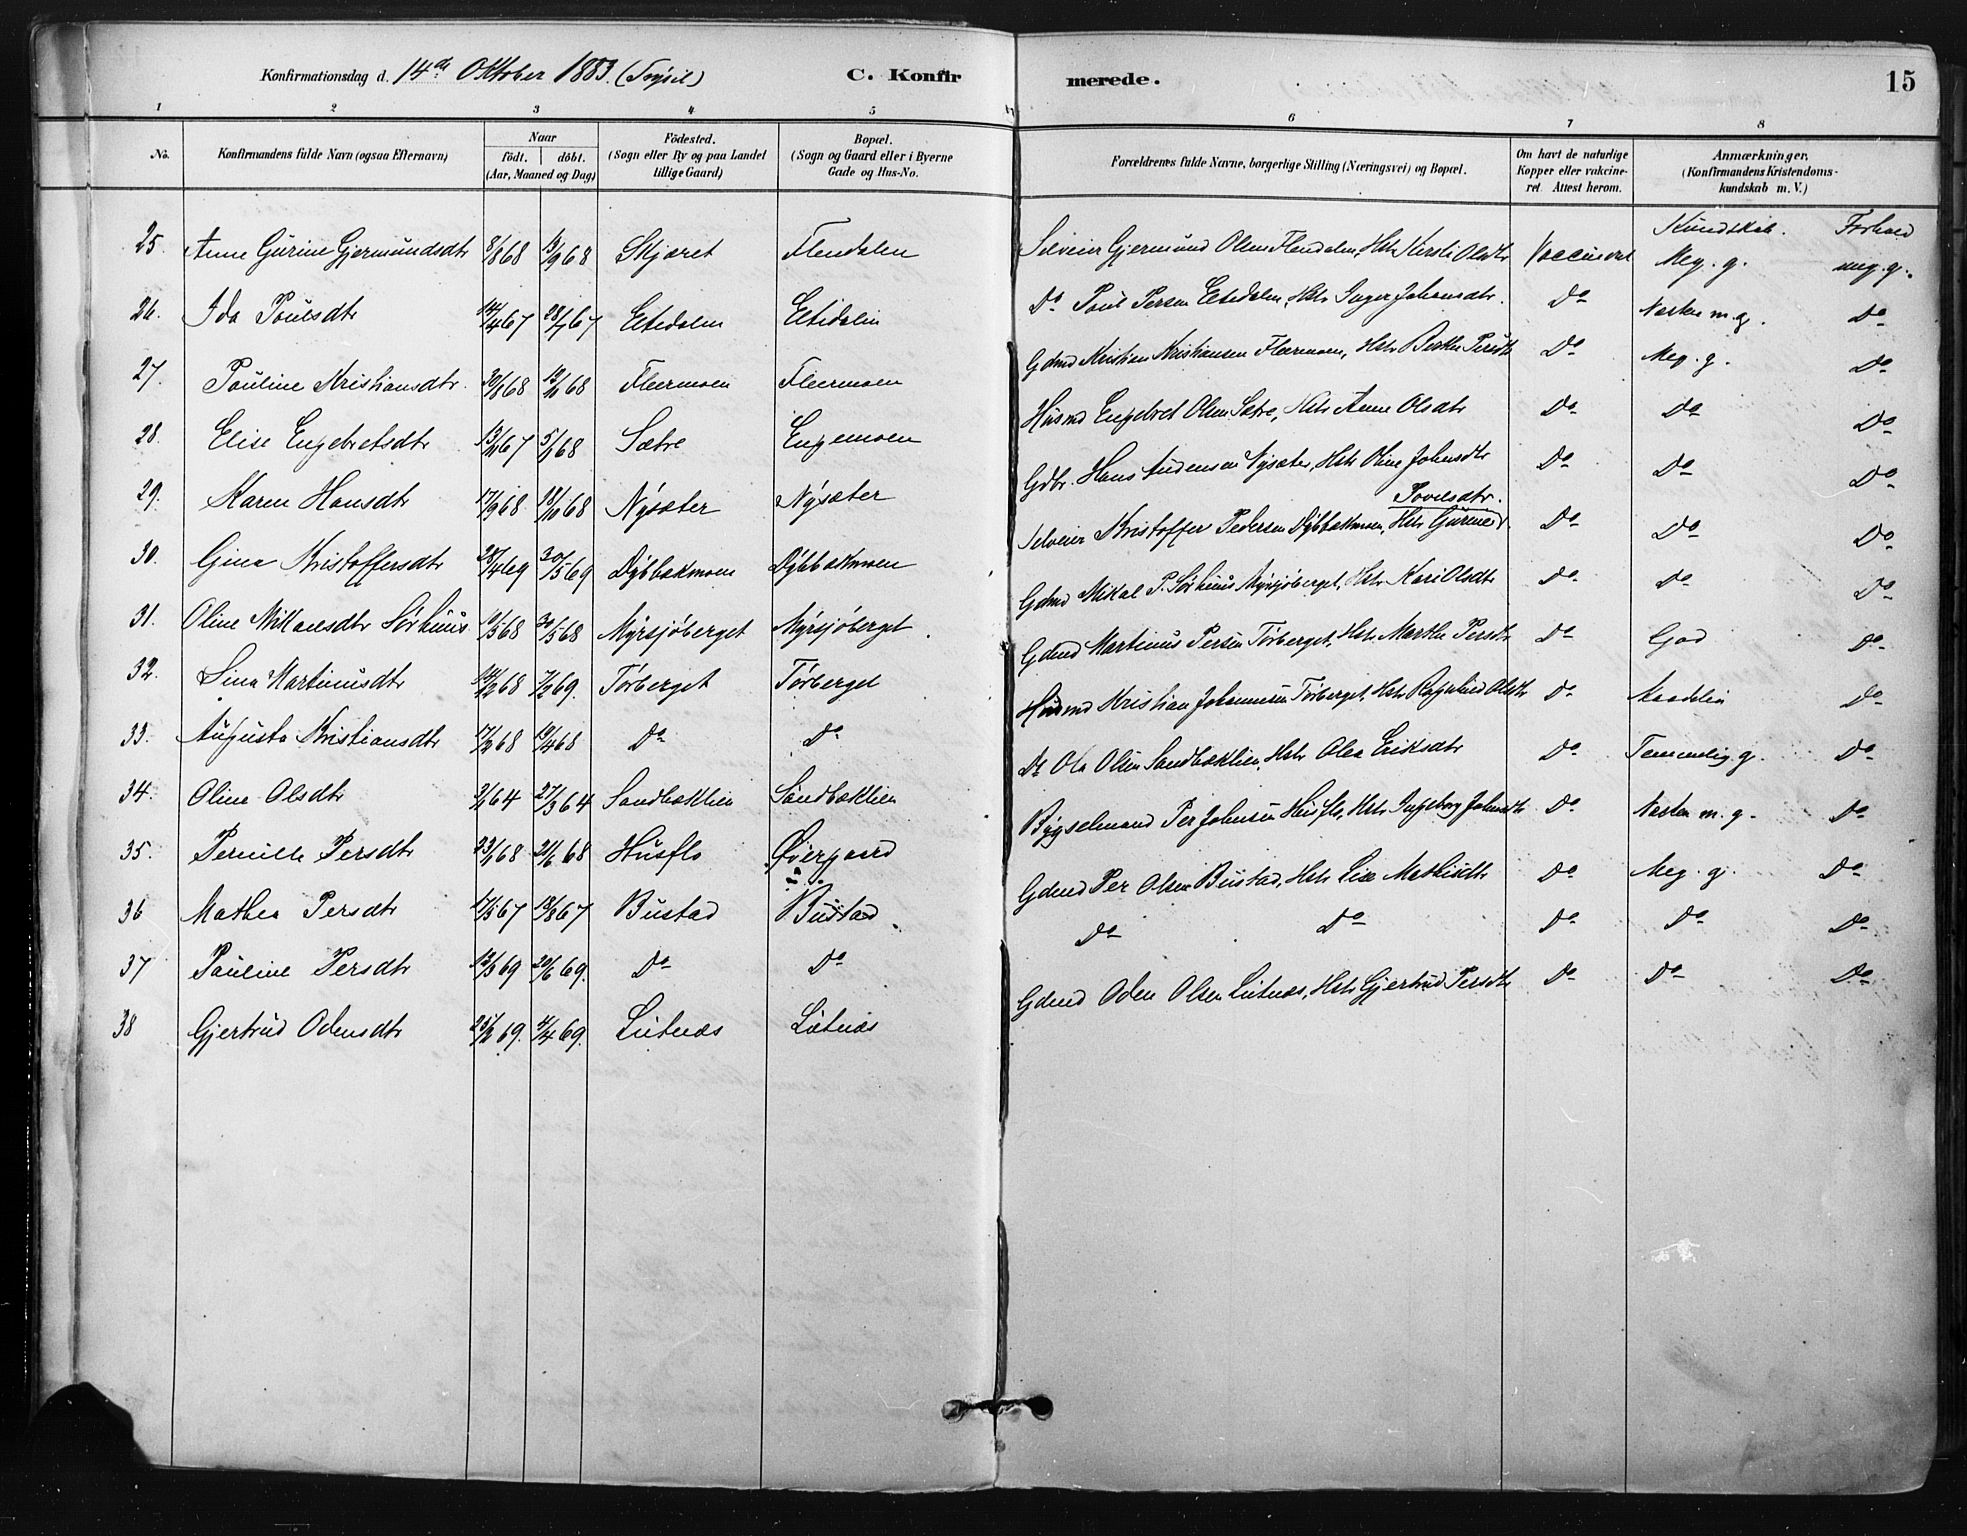 Konfirmationsdag d. 14de Oktober 1883. (Trysil) C. Konfirmerede. 15
1 2 3 4 5 6 7 8
No. Konfirmandens fulde Navn (ogsaa Efternavn) Naar födt. döbt. (Aar, Maaned og Dag) Födested. (Sogn eller By og paa Landet tillige Gaard) Bopæl. (Sogn og Gaard eller i Byerne Gade og Hus-No. Forældrenes fulde Navne, borgerlige Stilling (Næringsvei) og Bopæl. Om havt de naturlige Kopper eller vakcineret. Attest herom. Anmærkninger, (Konfirmandens Kristendomskundskab m. V.)
Kundskab. Forhold
25. Anne Gurine Gjermundsdtr 8/8 68 13/9 68 Skjæret Flendalen Selveier Gjermund Olsen Flendalen, Hstr Kersti Olsdtr Vaccineret Meg. g. meg. g.
26. Ida Poulsdtr 14/4 67 28/7 67 Eltedalen Eltedalen Do Poul Persen Eltedalen, Hstr Inger Johansdtr. Do Næsten m. g. Do
27. Pauline Kristiansdtr. 30/8 68 Flermoen Flermoen Gdmd Kristian Kristiansen Flermoen, Hstr Berthe Persdtr Do Meg. g. Do
28. Elise Engebretsdtr 5/1 68 Sætre Engemoen Husmd Engebret Olsen Sætre, Hstr Anne Olsdtr Do Do Do
29. Karen Hansdtr 17/9 68 18/10 68 Nysæter Nysæter Gdbr. Hans Andensen Nysæter, Hstr Oline Johnsdtr Do Do Do
30. Gina Kristoffersdtr 28/4 69 30/5 69 Dybbækmoen Dybbækmoen Selveier Kristoffer Pedersen Dybbækmoen, Hstr Gurine Povelsdtr. Do Do Do
31. Oline Mikaelsdtr Sørhuus 10/5 68 31/5 68 Myrsjøberget Myrsjøberget. Gdmd Mikal P. Sørhuus Myrsjøberget, Hstr Kari Olsdtr Do Do Do
32. Lina Martinusdtr 7/2 69. Tørberget Tørberget Gdmd Martinus Persen Tørberget, Hstr Marthe Persdtr Do God Do
33. Augusta Kristiansdtr 17/2 68 19/4 68 Do Do Husmd Kristian Johannesen Tørberget, Hstr Ragnhild Olsdtr Do Maadelig Do
34. Olina Olsdtr 27/3 64 Sandbæklien Sandbæklien Do Ola Olsen Sandbæklien, Hstr Olea Eriksdtr Do Temmelig g. Do
35. Pernille Persdtr 23/1 68 21/6 68 Husflo Øvergaard Bygselmand Per Johnsen Husflo, Hstr Ingeborg Johnsdtr Do Næsten m. g. Do
36 Mathea Persdtr 17/5 67 18/8 67 Bustad Bustad Gdmd Per Olsen Bustad, Hstr Lise Mathisdtr Do Meg. g. Do
37 Pauline Persdtr 13/3 69 20/6 69. Do Do Do Do Do Do Do
38 Gjertrud Odensdtr 25/2 69. 4/4 69. Lutnæs Lutnæs Gdmd Oden Olsen Lutnæs, Hstr Gjertrud Persdtr Do Do Do